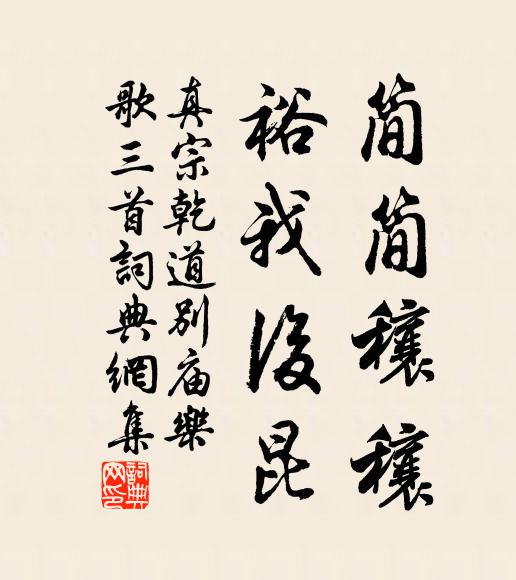 简简穰穰
裕我後昆
真宗乾道別庙樂
歌三首詞典網集
詞典网印